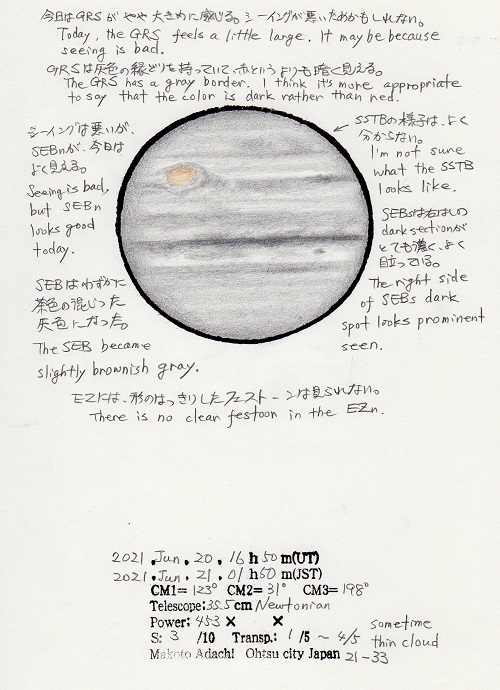 今日はGRSがやや大きめに感じる。シーイングが悪いためかもしれない。
Today, the GRS feels a little large. It may be because
seeing is bad.
GRSは灰色の縁どりを持っていて、赤というよりも暗く見える。
The GRS has a gray border. I think it's more appropriate
to say that the color is dark rather than red.
シーイングは悪いが、
SEBnが、今日は
よく見える。
Seeing is bad,
but SEBn
looks good
today.
SSTBの様子は、よく
分からない。
I'm not sure
what the SSTB
looks like.
SEBsは右はしの
dark sectionが
とても濃く、よく
目立っている。
The right side
of SEBs dark
spot looks prominent
seen.
SEBはわずかに
茶色の混じった
灰色になった。
The SEB became
slightly brownish gray.
EZには、形のはっきりしたフェストーンは見られない。
There is no clear festoon in the EZn.
2021.Jun.20.16h50m(UT)
2021.Jun.21.01h50m(JST)
CM1=123° CM2=31° CM3=198°
Telescope:35.5cm Newtonian
Power:453× ×
S: 3 /10 Transp.: 1/5 ~ 4/5 sometime
thin cloud
Makoto Adachi Ohtsu city Japan 21-33